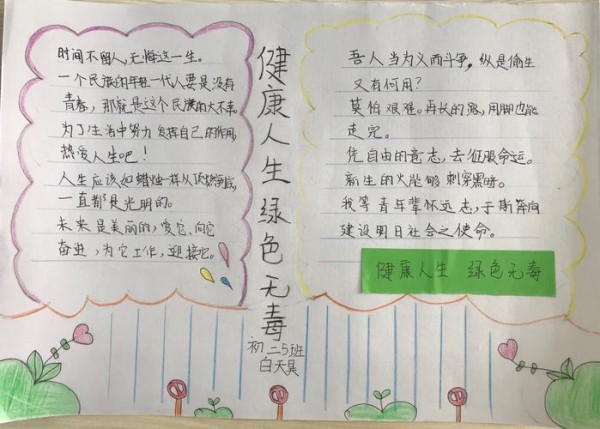 时间不留人,无悔这一生。
一个民族的年轻一代人要是没有
青春,那就是这个民族的大不幸。
为了生活中努力发挥自己的作用,
热爱人生吧!
人生应该如蜡烛一样从顶燃到底,
一直都是光明的。
未来是美丽的,爱它、向它
奋进,为它工作,迎接它。
健康人生绿色无毒
初二5班
白天昊
吾人当为义而斗争,纵是偷生
又有何用?
莫怕艰难。再长的路,用脚也能
走完。
凭自由的意志,去征服命运。
新生的火能够刺穿黑暗。
我等青年辈怀远志,于斯奔向
建设明日社会之使命。
健康人生 绿色无毒